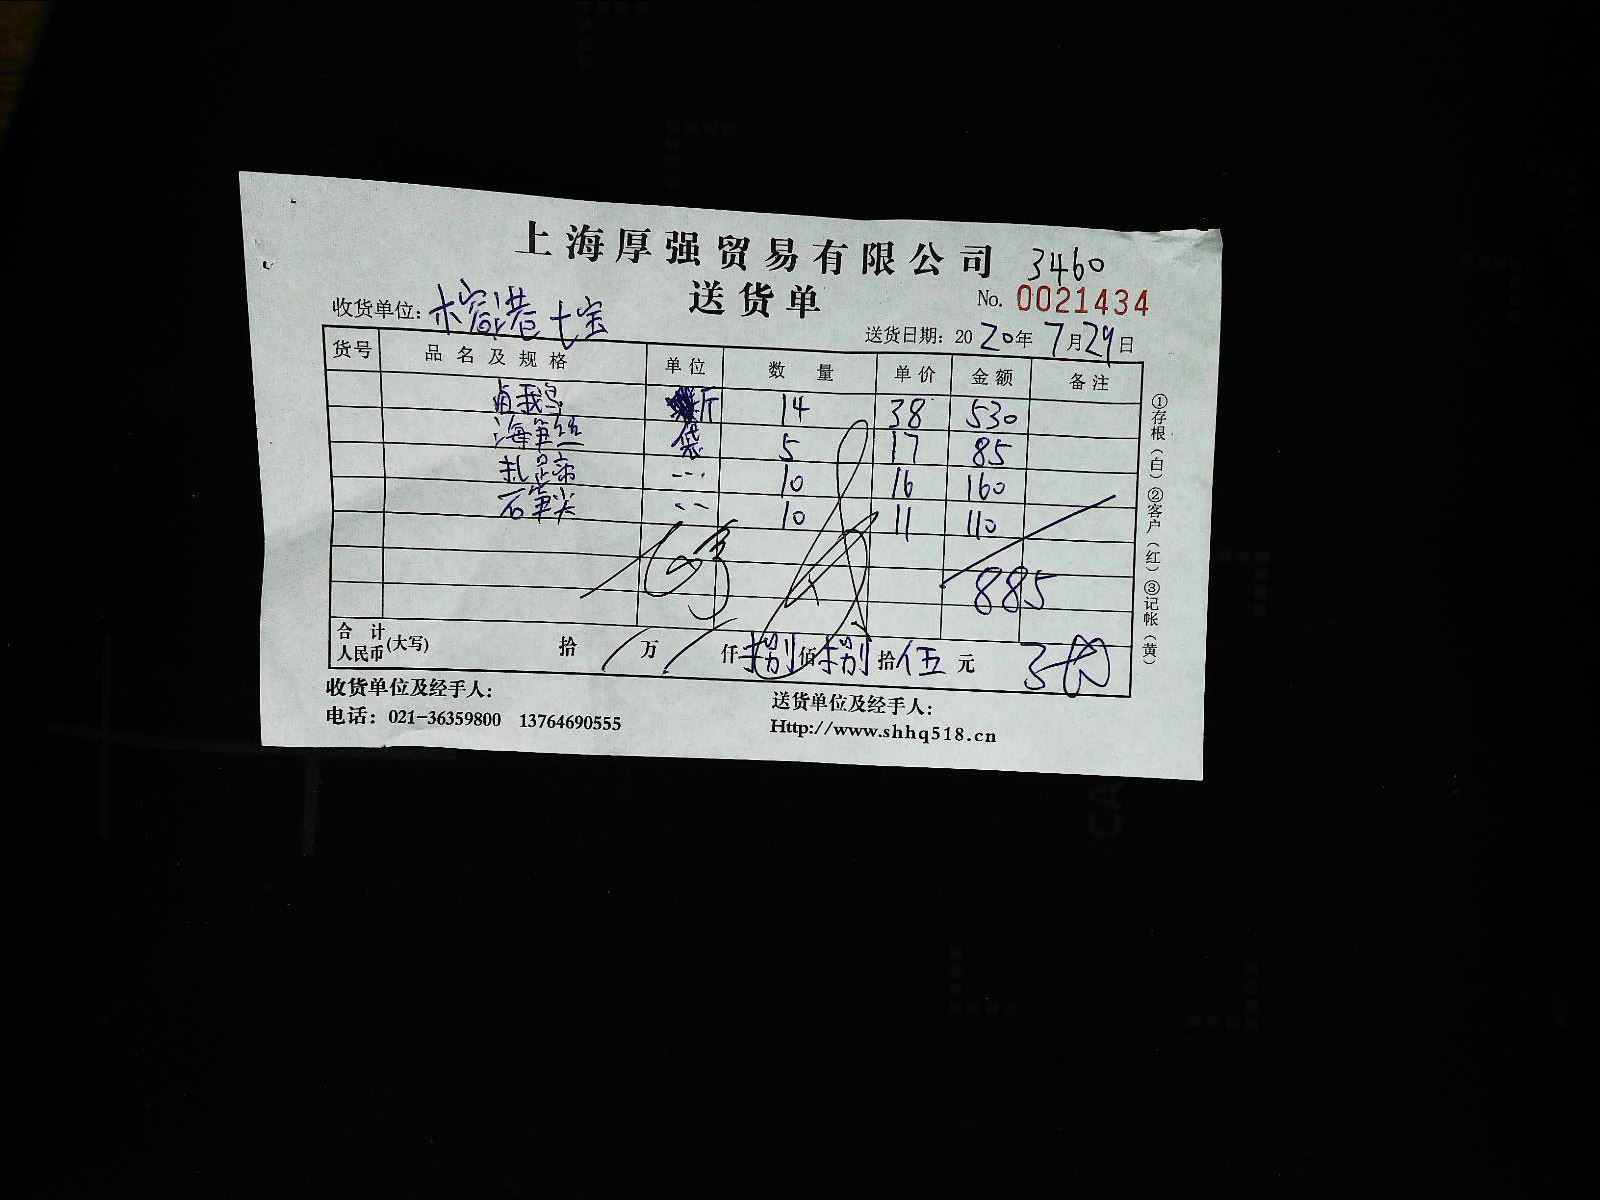 上海厚强贸易有限公司 3460
送货单 No. 0021434
收货单位： 七宝 送货日期：2020年7月29日
货号 品名及规格 单位 数量 单价 金额 备注
斤 14 38 530
海笋丝 袋 5 17 85
扎 10 16 160
石笋尖 10 11 110
885
合计人民币(大写) 拾 万 仟捌佰捌拾伍元
收货单位及经手人： 送货单位及经手人：
电话：021-36359800 13764690555 Http://www.shhq518.cn
①存根（白）②客户（红）③记帐（黄）